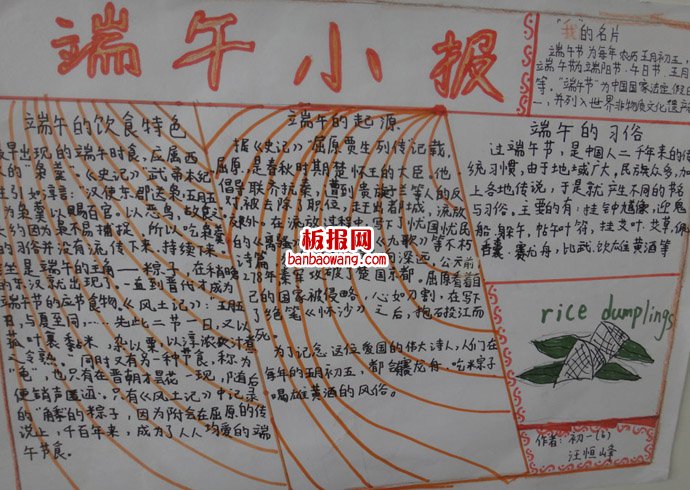 端午小报
"我"的名片
端午节为每年农历五月初五,
端午节为端阳节、午日节、五月
等,"端午节"为中国国家法定假日
一,并列入世界非物质文化遗产
端午的饮食特色
最早出现的端午时食,应属西
的"枭羹"。《史记》"武帝本纪"
引如淳言:汉使东郡送枭,五月五
为枭羹以赐百官。以恶鸟,故食之
大约因为枭不易捕捉,所以吃枭羹
的习俗并没有流传下来,持续下来。
是端午的主角——粽子,在稍晚
的东汉就出现了。一直到晋代才成为
端午节的应节食物。《风土记》:五月
与夏至同,……先此二节一日,又以
菰叶裹黏米,杂以粟,以淳浓灰汁煮
令熟。"同时又有另一种节食,称为
"龟",也只有在晋朝才昙花一现,随后
便销声匿迹。只有《风土记》中记录
的"角黍"的粽子,因为附会在屈原的传
说上,千百年来,成为了人人均爱的端
午节食。
端午的起源
据《史记》"屈原贾生列传"记载,
屈原,是春秋时期楚怀王的大臣。他
倡导联齐抗秦,遭到贵族子兰等人的反
对,被去除了职位,赶出都城,流放
在流放过程中,写下忧国忧民
的《离骚》《九歌》等不朽
诗篇
公元前
278年秦军攻破了楚国京都。屈原看着自
己的国家被侵略,心如刀割,在写下
了绝笔《怀沙》之后,抱石投江而
死。
为了纪念这位爱国的伟大诗人,人们在
每年的五月初五,都会赛龙舟、吃粽子
喝雄黄酒的风俗。
端午的习俗
过端午节,是中国人二千年来的传
统习惯,由于地域广大,民族众多,加
上各地传说,于是就产生不同的节名
与习俗。主要的有:挂钟馗像,迎鬼
船、躲午、帖午叶符、挂艾叶、艾草、佩
香囊、赛龙舟,比武、饮雄黄酒等
板报网
banbaowang.com
rice dumplings
作者:初一(6)
汪恒峰